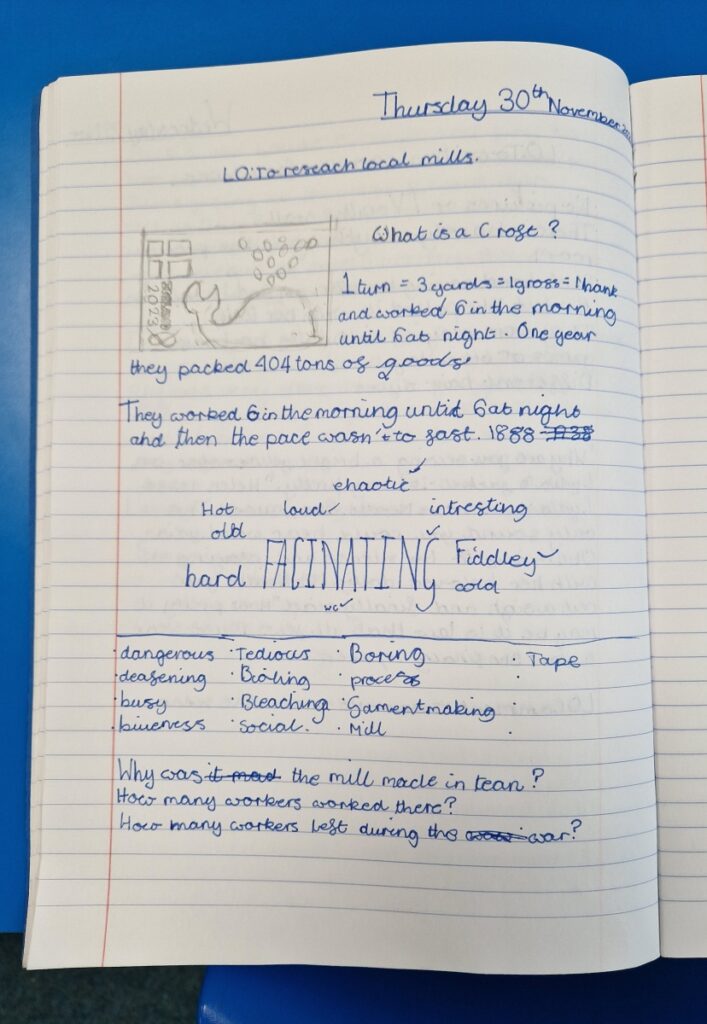 Thursday 30th November
LO: To reseach local mills.
What is a Croft?
2023
1 turn = 3 yards = 1 gross = 1 hank
and worked 6 in the morning
until 6 at night. One year
they packed 404 tons of goods
They worked 6 in the morning until 6 at night
and then the pace wasn't to fast. 1888
chaotic
Hot loud intresting
old
hard FACINATING Fiddley
cold
WC
· dangerous · Tedious · Boring · Tape
· deafening · process ·
· busy · Bleaching · Garmentmaking ·
· biuness · Social. · Mill ·
Why was it mad the mill made in tean?
How many workers worked there?
How many workers left during the war?